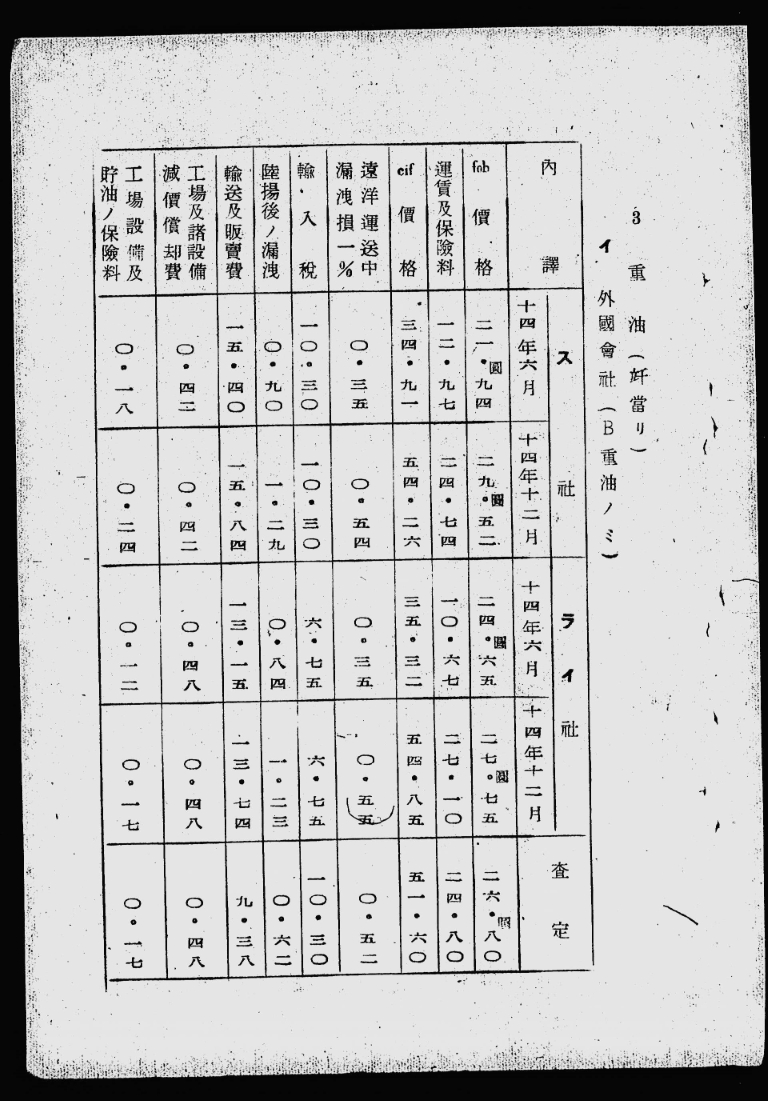 3 重油(竏當リ)
イ 外國會社(B重油ノミ)
內譯 ス社 ライ社 査定
十四年六月 十四年十二月 十四年六月 十四年十二月
fob價格 二一・九四圓 二九・五二圓 二四・六五圓 二七・七五圓 二六・八〇圓
運賃及保險料 一二・九七 二四・七四 一〇・六七 二七・一〇 二四・八〇
cif價格 三四・九一 五四・二六 三五・三二 五四・八五 五一・六〇
遠洋運送中
漏洩損一% 〇・三五 〇・五四 〇・三五 〇・五五 〇・五二
輸入稅 一〇・三〇 一〇・三〇 六・七五 六・七五 一〇・三〇
陸揚後ノ漏洩 〇・九〇 一・二九 〇・八四 一・二三 〇・六二
輸送及販賣費 一五・四〇 一五・八四 一三・一五 一三・七四 九・三八
工場及諸設備
減價償却費 〇・四二 〇・四二 〇・四八 〇・四八 〇・四八
工場設備及
貯油ノ保險料 〇・一八 〇・二四 〇・一二 〇・一七 〇・一七